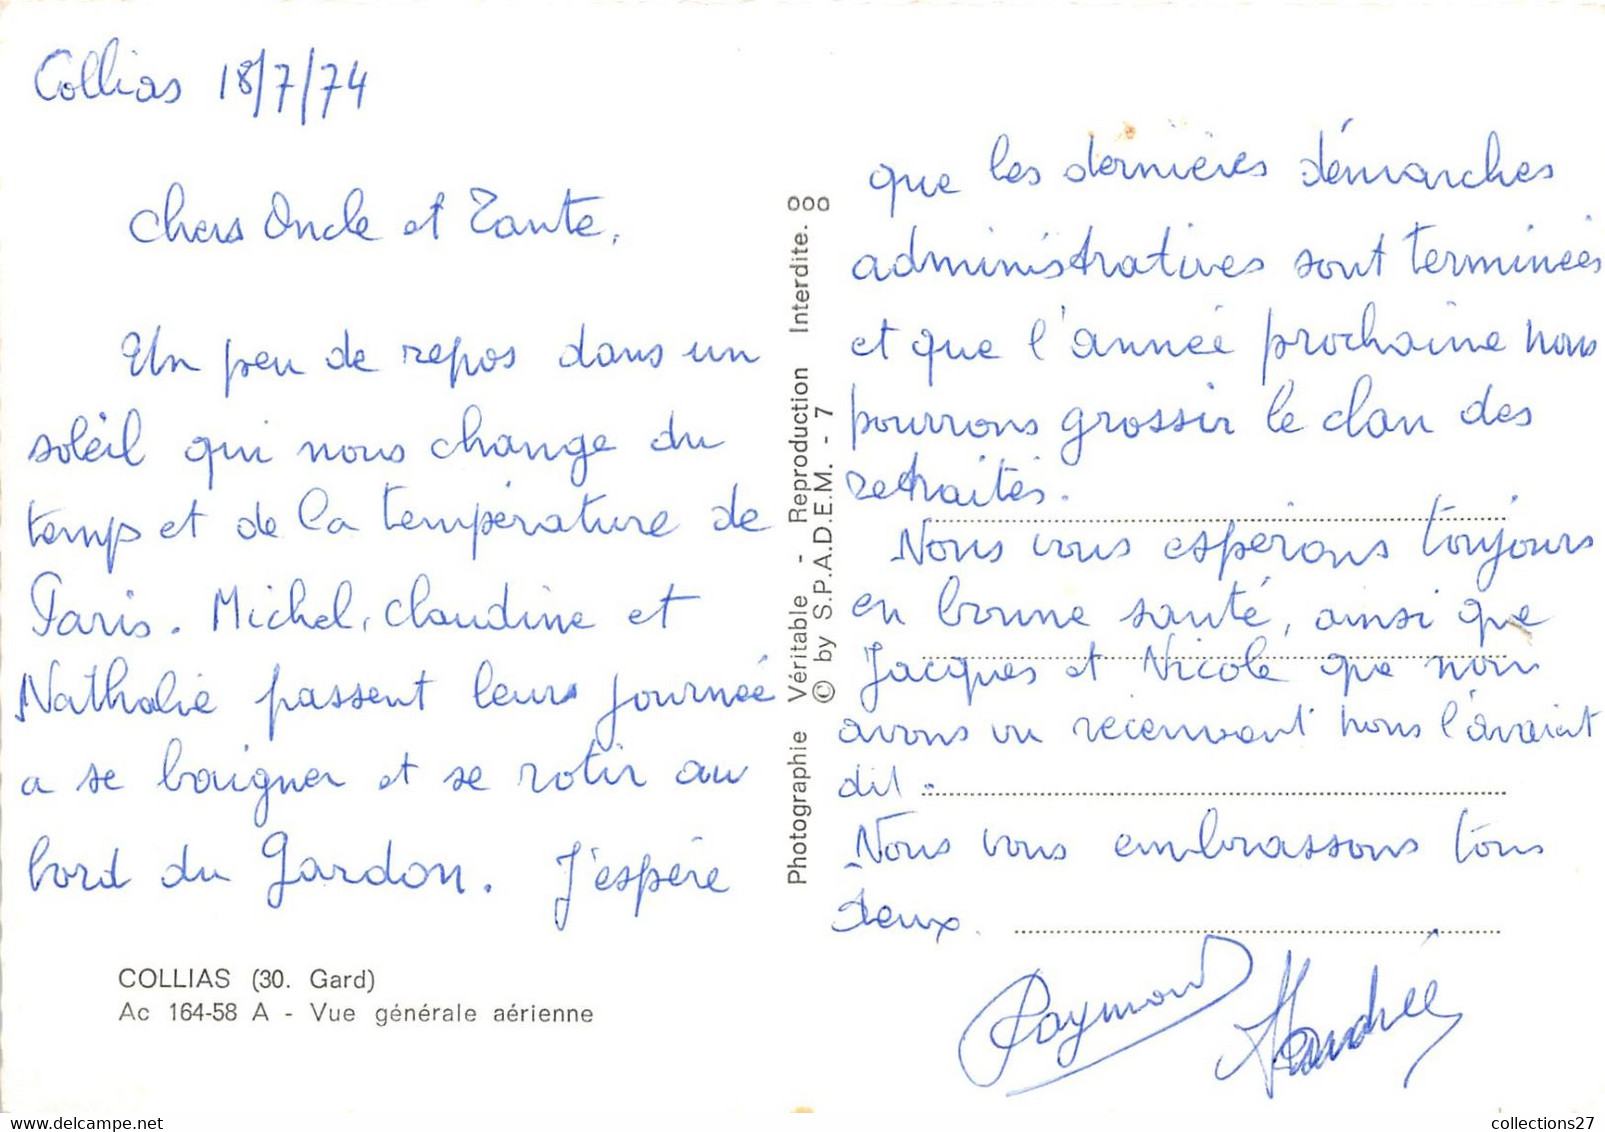 Collias 18/7/74
Chers Oncle et Tante,
Un peu de repos dans un
soleil qui nous change du
temps et de la température de
Paris. Michel, Claudine et
Nathalie passent leurs journée
a se baigner et se rotir au
bord du Gardon. J'espère
COLLIAS (30. Gard)
Ac 164-58 A - Vue générale aérienne
Photographie Véritable - Reproduction Interdite.
© by S.P.A.D.E.M. - 7
que les dernières démarches
administratives sont terminées
et que l'année prochaine nous
pourrons grossir le clan des
retraités.
Nous vous espérons toujours
en bonne santé, ainsi que
Jacques et Nicole que nous
avons vu recemment nous l'avaient
dit.
Nous vous embrassons tous
deux.
Raymond Andrée
collections27